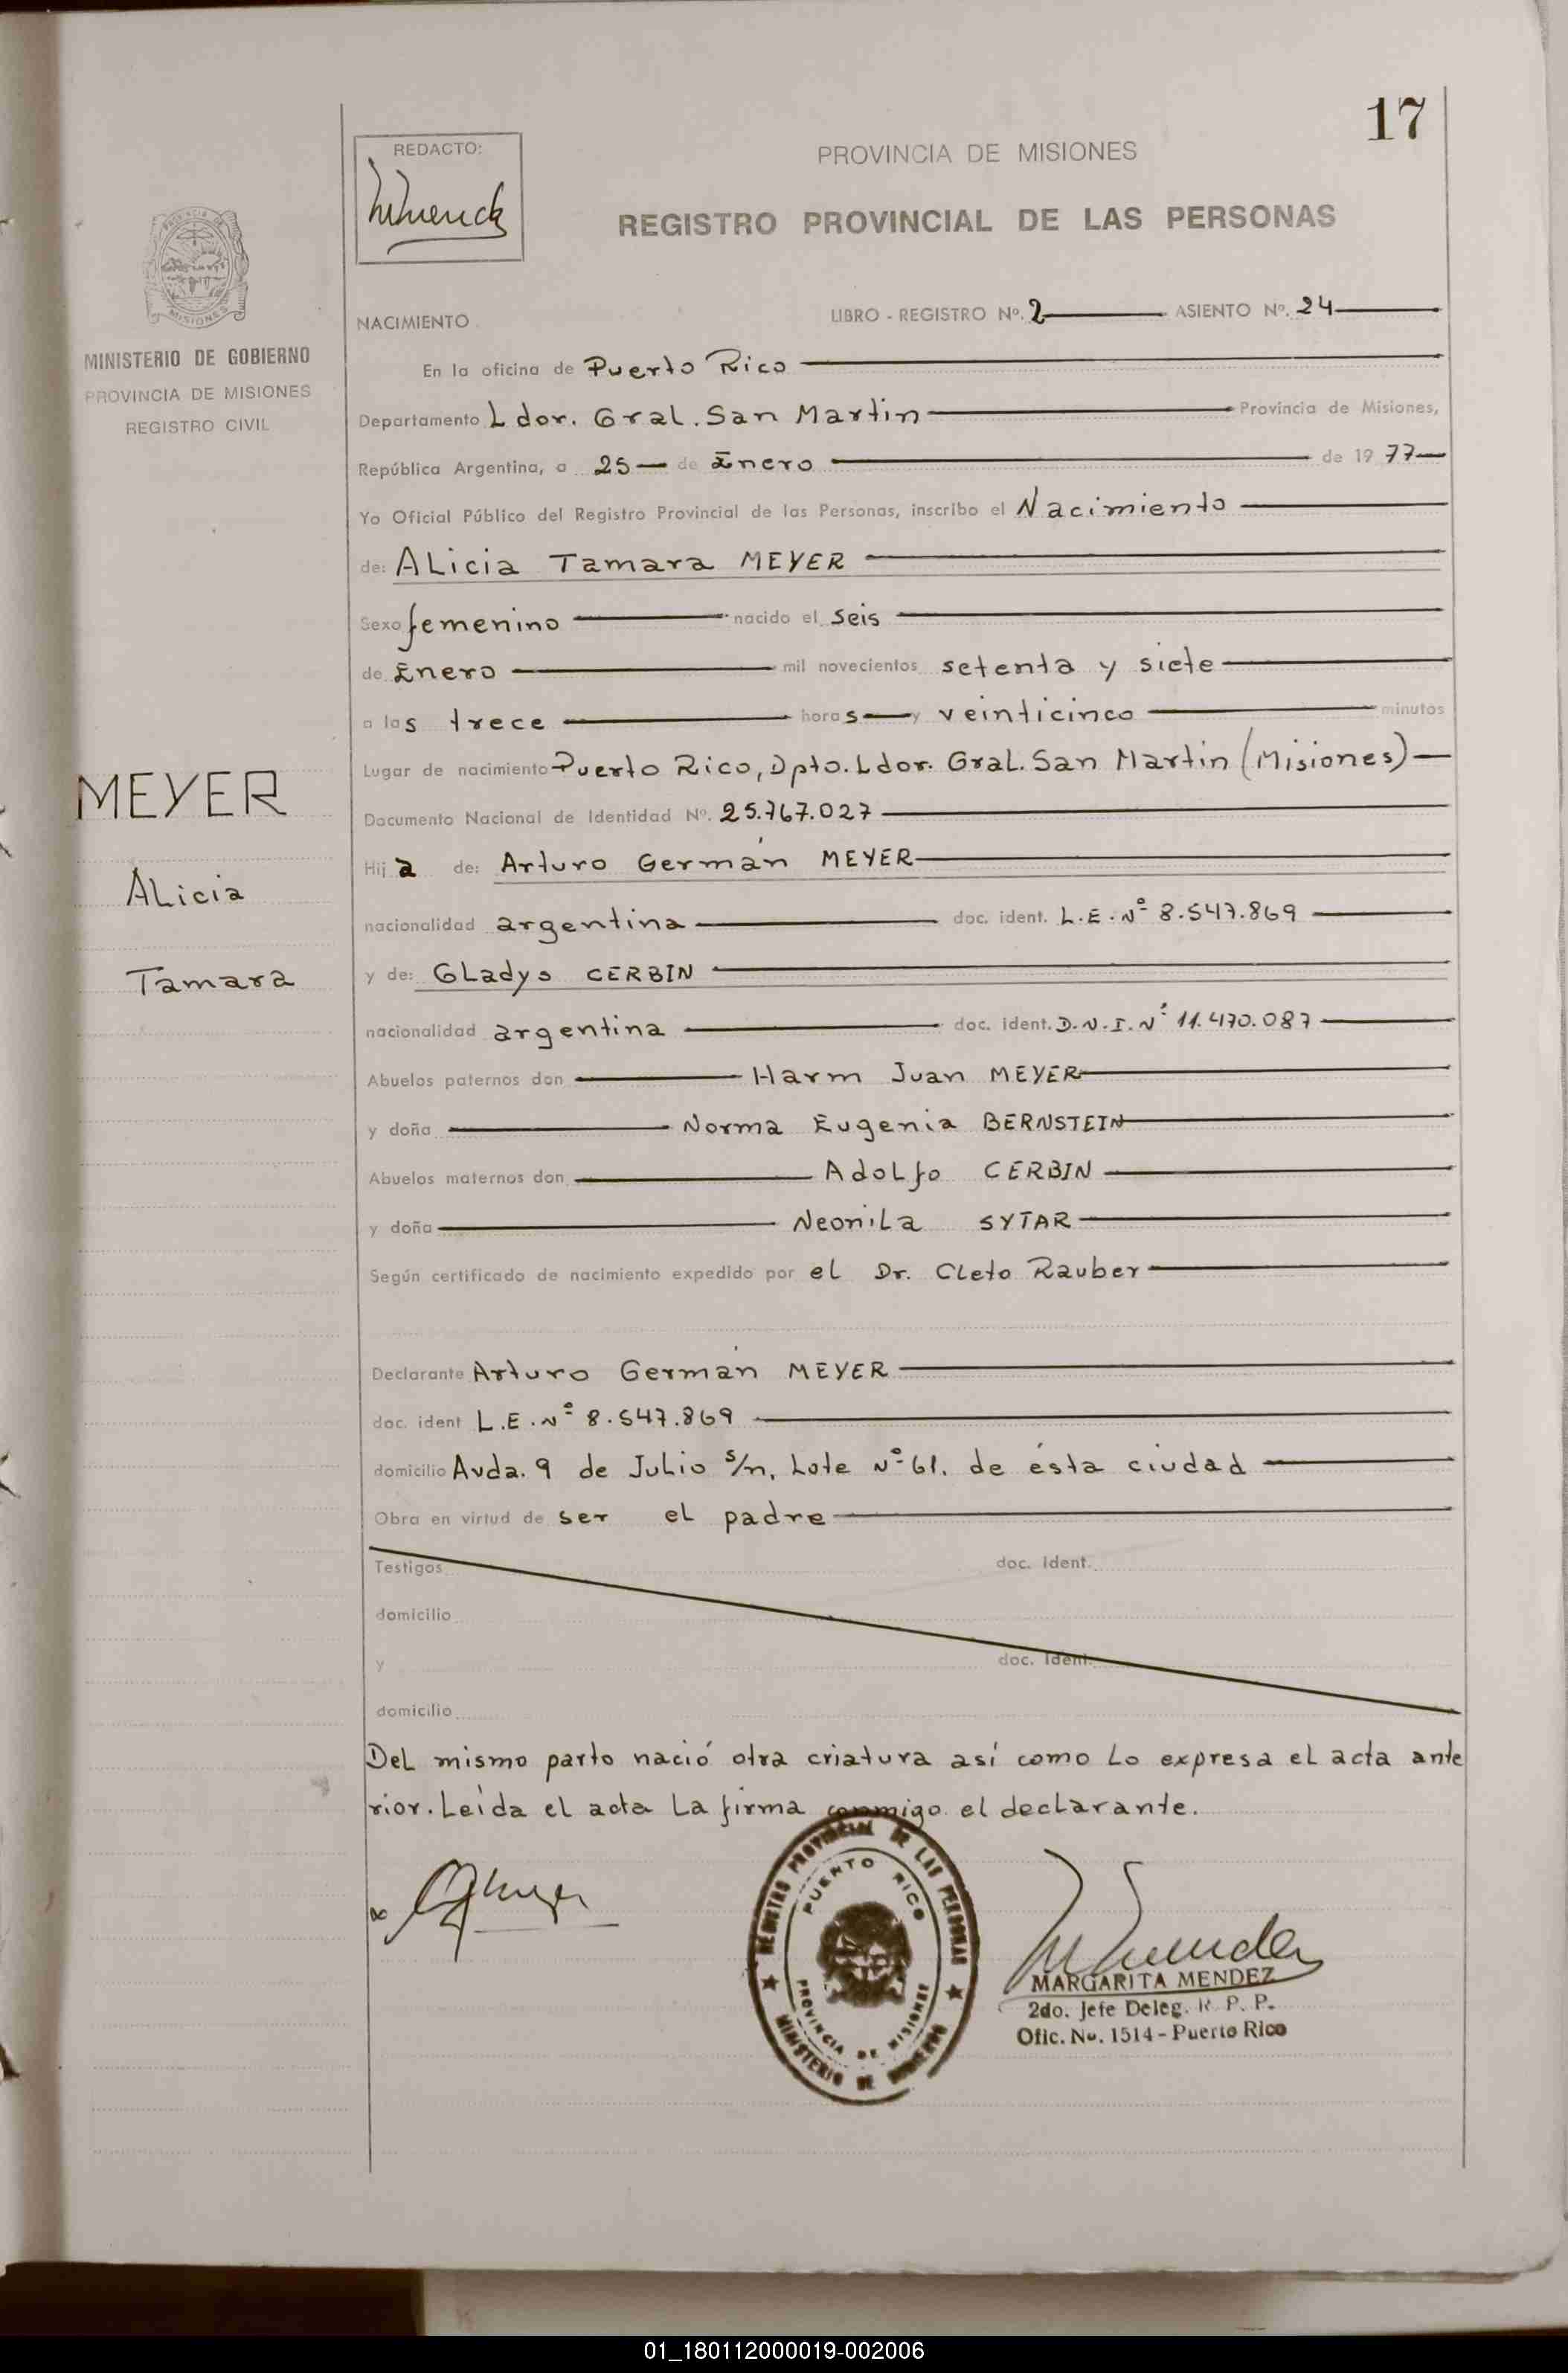 17
REDACTO:
PROVINCIA DE MISIONES
REGISTRO PROVINCIAL DE LAS PERSONAS
MISIONES
MINISTERIO DE GOBIERNO
PROVINCIA DE MISIONES
REGISTRO CIVIL
MEYER
Alicia
Tamara
NACIMIENTO LIBRO - REGISTRO Nº. 2 ASIENTO Nº. 24
En la oficina de Puerto Rico
Departamento Ldor. Gral. San Martin Provincia de Misiones,
República Argentina, a 25 de Enero de 1977
Yo Oficial Público del Registro Provincial de las Personas, inscribo el Nacimiento
de: Alicia Tamara MEYER
Sexo femenino nacido el seis
de Enero mil novecientos setenta y siete
a las trece horas y veinticinco minutos
Lugar de nacimiento Puerto Rico, Dpto. Ldor. Gral. San Martin (Misiones)
Documento Nacional de Identidad Nº. 25.767.027
Hija de: Arturo Germán MEYER
nacionalidad argentina doc. ident. L.E. Nº 8.547.869
y de: Gladys CERBIN
nacionalidad argentina doc. ident. D.N.I. Nº 11.470.087
Abuelos paternos don Harm Juan MEYER
y doña Norma Eugenia BERNSTEIN
Abuelos maternos don Adolfo CERBIN
y doña Neonila SYTAR
Según certificado de nacimiento expedido por el Dr. Cleto Rauber
Declarante Arturo Germán MEYER
doc. ident L.E. Nº 8.547.869
domicilio Avda. 9 de Julio s/n, Lote Nº 61. de ésta ciudad
Obra en virtud de ser el padre
Testigos doc. Ident.
domicilio
y doc. Ident.
domicilio
Del mismo parto nació otra criatura así como lo expresa el acta ante
rior. Leída el acta la firma conmigo el declarante.
REGISTRO PROVINCIAL DE LAS PERSONAS
PUERTO RICO
PROVINCIA DE MISIONES
MINISTERIO DE GOBIERNO
MARGARITA MENDEZ
2do. Jefe Deleg. R. P. P.
Ofic. No. 1514 - Puerto Rico
01_180112000019-002006